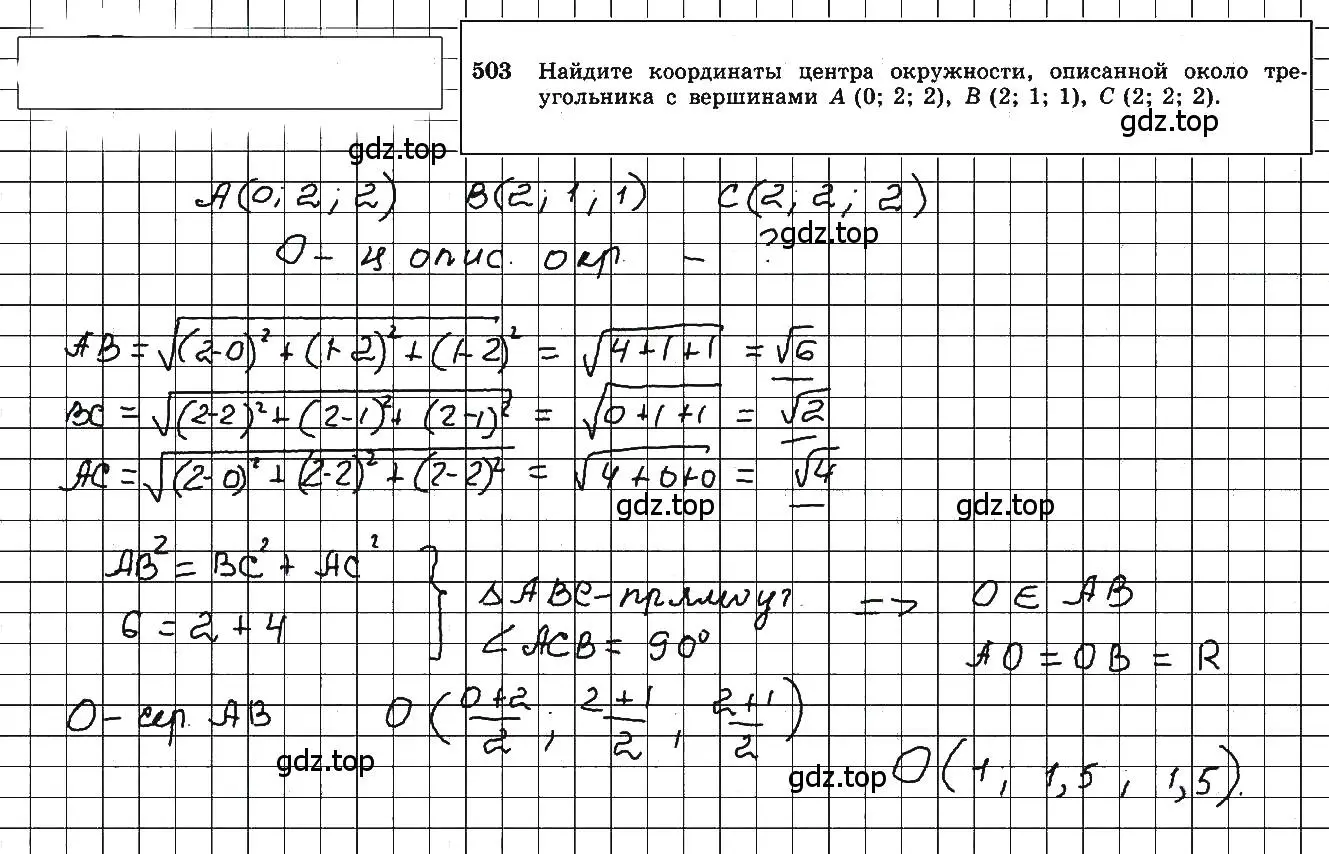 503 Найдите координаты центра окружности, описанной около тре-
угольника с вершинами A (0; 2; 2), B (2; 1; 1), C (2; 2; 2).
gdz.top
gdz.top
A(0; 2; 2) B(2; 1; 1) C(2; 2; 2)
O – ц опис. окр. – ?
gdz.top
AB = √((2-0)² + (1-2)² + (1-2)²) = √(4+1+1) = √6
BC = √((2-2)² + (2-1)² + (2-1)²) = √(0+1+1) = √2
AC = √((2-0)² + (2-2)² + (2-2)²) = √(4+0+0) = √4
gdz.top gdz.top
AB² = BC² + AC² } ΔABC – прямоуг. => O ∈ AB
6 = 2 + 4 ∠ACB = 90° AO = OB = R
O – сер. AB O((0+2)/2; (2+1)/2; (2+1)/2)
gdz.top gdz.top
O(1; 1,5; 1,5).